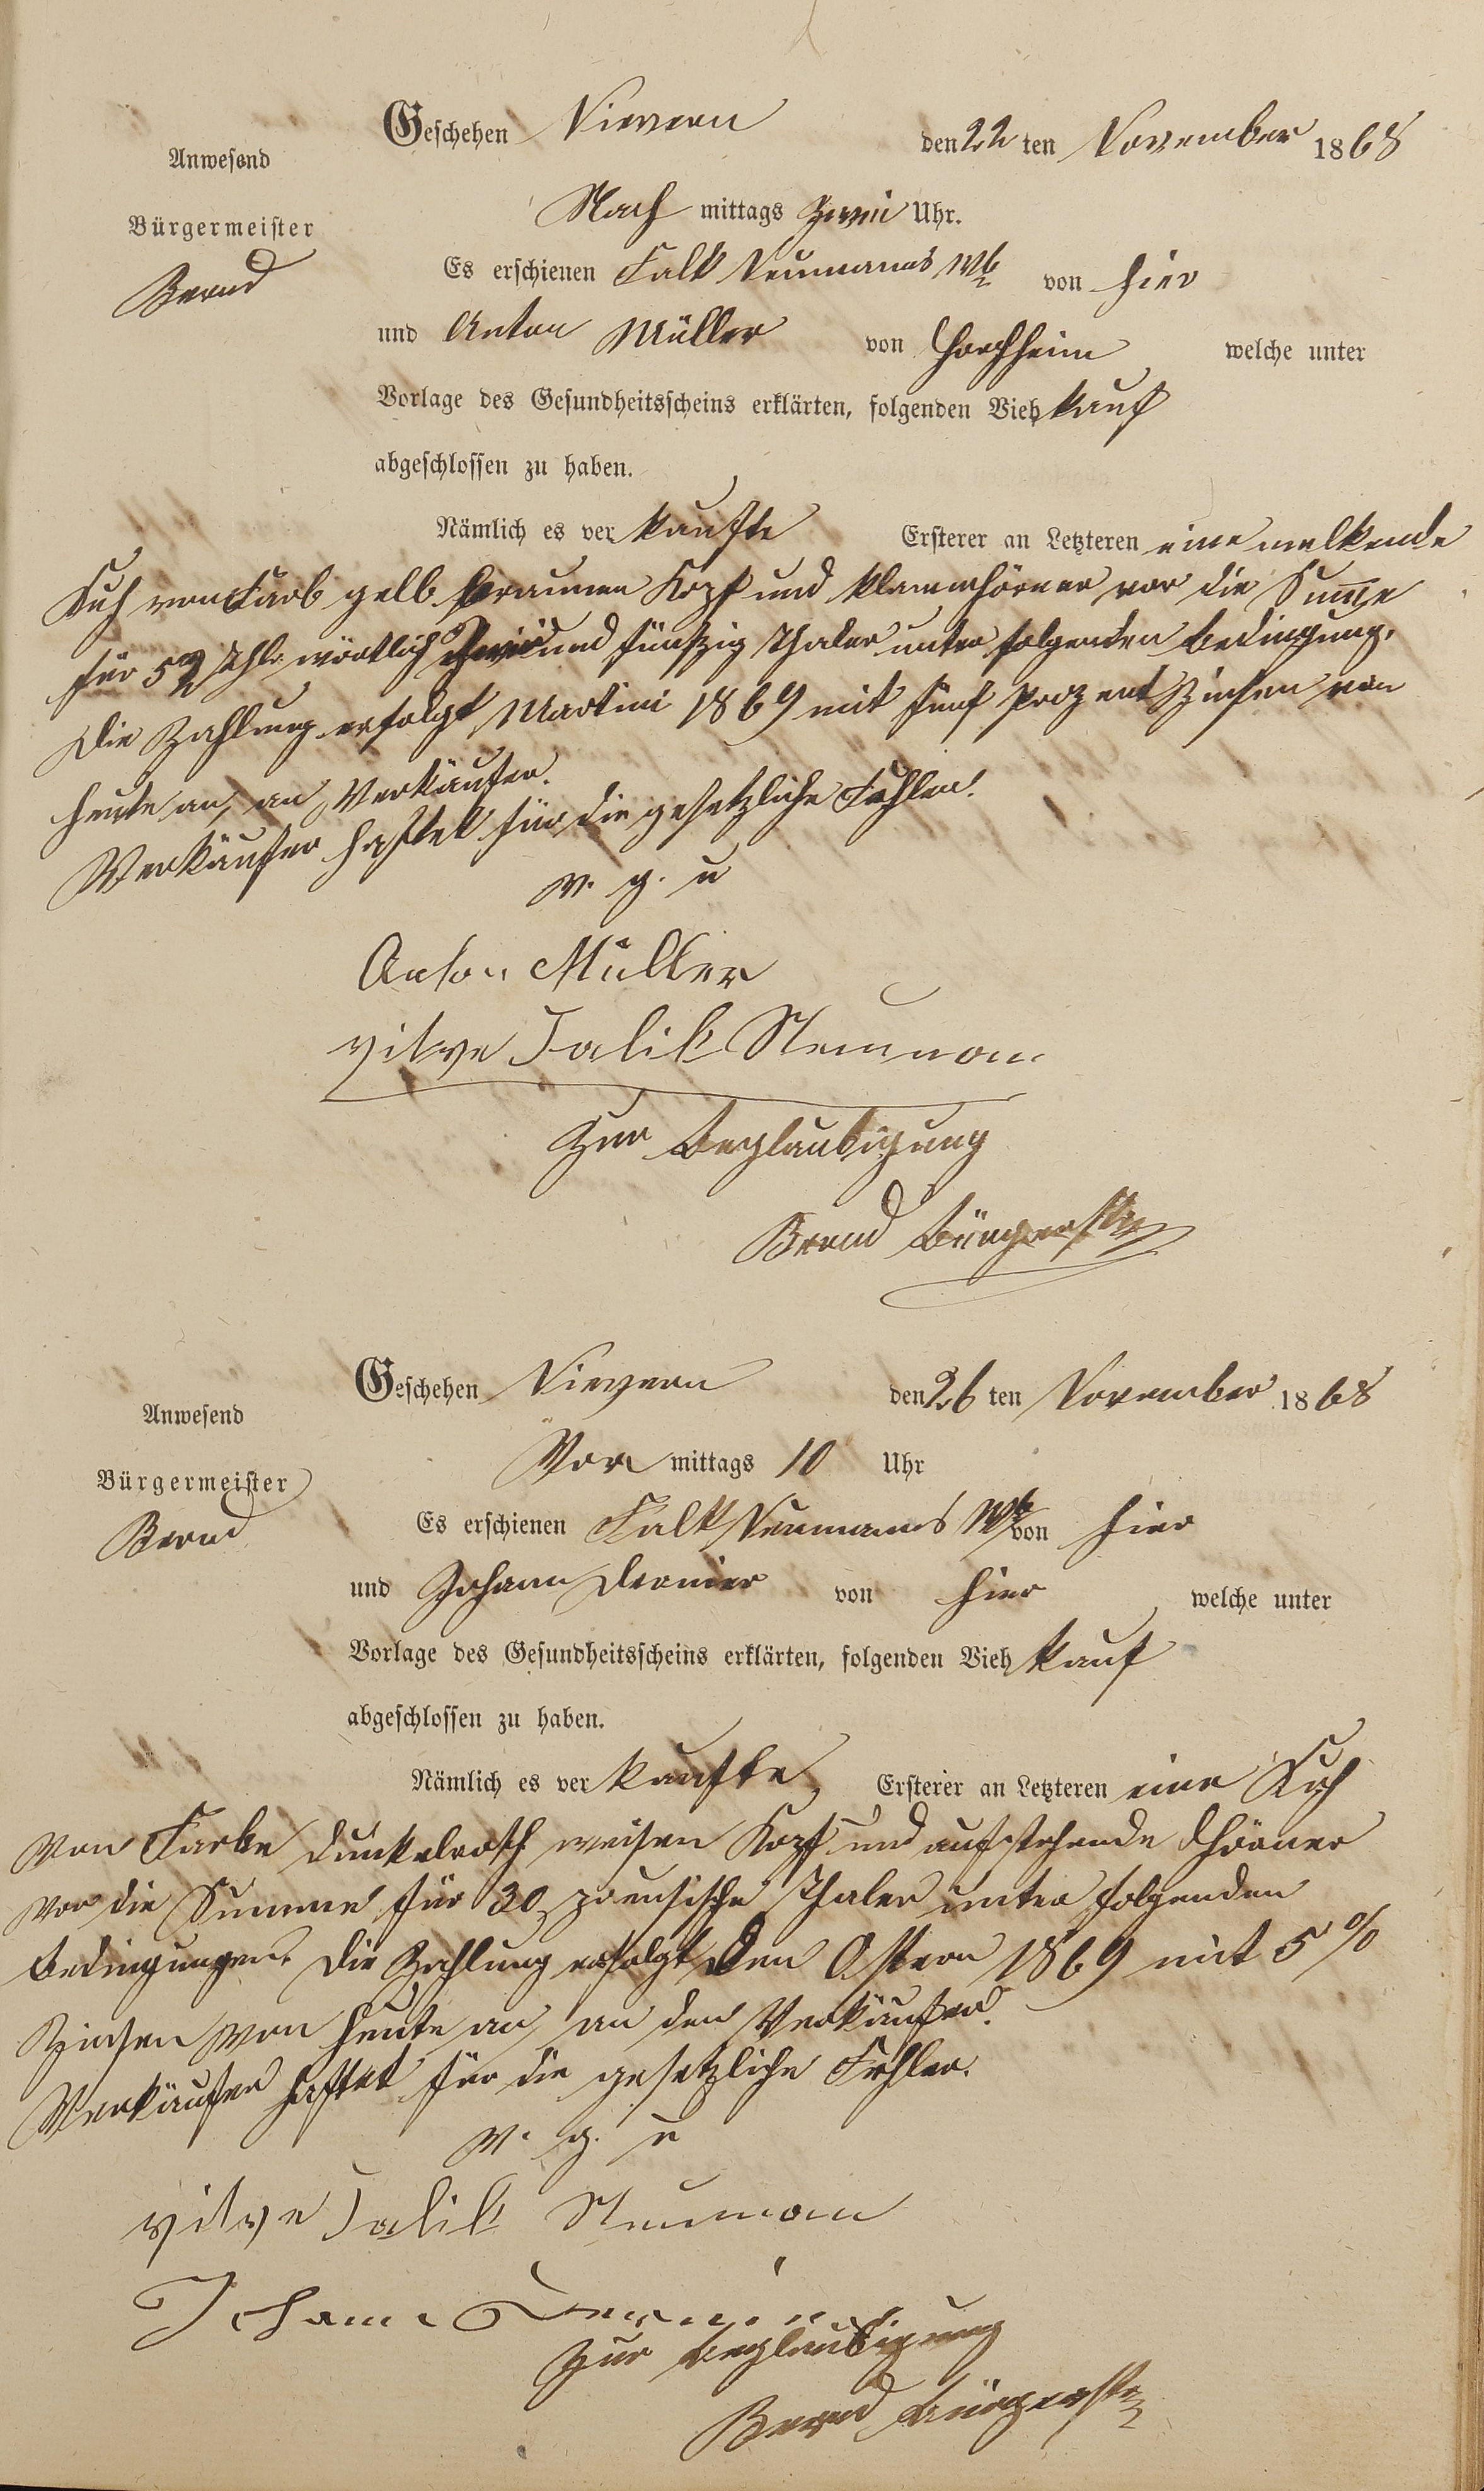 Geschehen Nievern den 22 ten November 1868
Anwesend
Nach mittags Zwei Uhr.
Bürgermeister
Bernd
Es erschienen Falk Neumanns Wb von hier
und Anton Müller von Horchheim welche unter
Vorlage des Gesundheitsscheins erklärten, folgenden Vieh kauf
abgeschlossen zu haben.
Nämlich es ver kaufte Ersterer an Letzteren eine melkende
Kuh von Farb gelb braunen Kopf und klammhörner vor die Summe
für 52 Thlr wörtlich Zwei und fünfzig Thaler unter folgenden bedingung.
Die Zahlung erfolgt Martini 1869 mit fünf Prozent Zinsen von
heute an, an Verkäufer.
Verkäufer haftet für die gesetzliche Fehler.
v. g. u
Anton Müller
vitve Falik Neumann
Zur Beglaubigung
Bernd Bürgerstr
Geschehen Nievern den 26 ten November 1868
Anwesend
Vor mittags 10 Uhr
Bürgermeister
Bernd
Es erschienen Falk Neumanns Wb von hier
und Johann Dernier von hier welche unter
Vorlage des Gesundheitsscheins erklärten, folgenden Vieh kauf
abgeschlossen zu haben.
Nämlich es ver kaufte Ersterer an Letzteren eine Kuh
von Farbe dunkelroth weisen Kopf und aufstehende Hörner
vor die Summe für 30 preusische Thaler unter folgenden
Bedingungen. Die Zahlung erfolgt den Ostern 1869 mit 5 %
Zinsen von heute an, an den Verkäufer.
Verkäufer haftet für die gesetzliche Fehler.
v. g. u
vitve Falik Neuman
Johann Dernier
Zur Beglaubigung
Bernd Bürgerstr